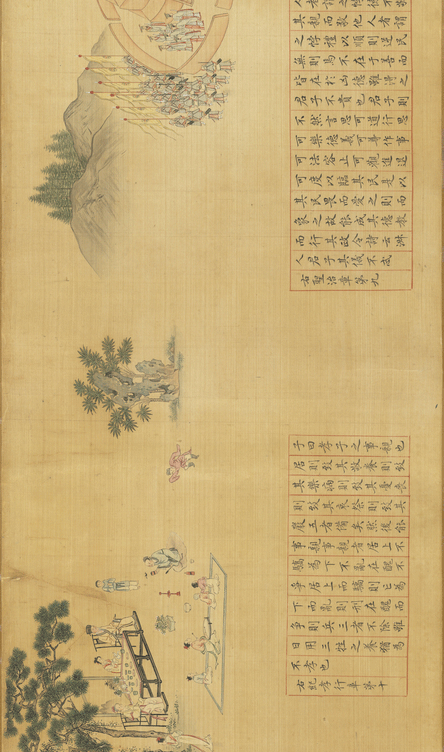 人者謂之悖德不敬
其親而敬他人者謂
之悖禮以順則逆民
無則焉不在于善而
皆在於凶德雖得之
君子不貴也君子則
不然言思可道行思
可樂德義可尊作事
可法容止可觀進退
可度以臨其民是以
其民畏而愛之則而
象之故能成其德教
而行其政令詩云淑
人君子其儀不忒
右聖治章第九
子曰孝子之事親也
居則致其敬養則致
其樂病則致其憂喪
則致其哀祭則致其
嚴五者備矣然後能
事親事親者居上不
驕為下不亂在醜不
爭居上而驕則亡為
下而亂則刑在醜而
爭則兵三者不除雖
日用三牲之養猶為
不孝也
右紀孝行章第十